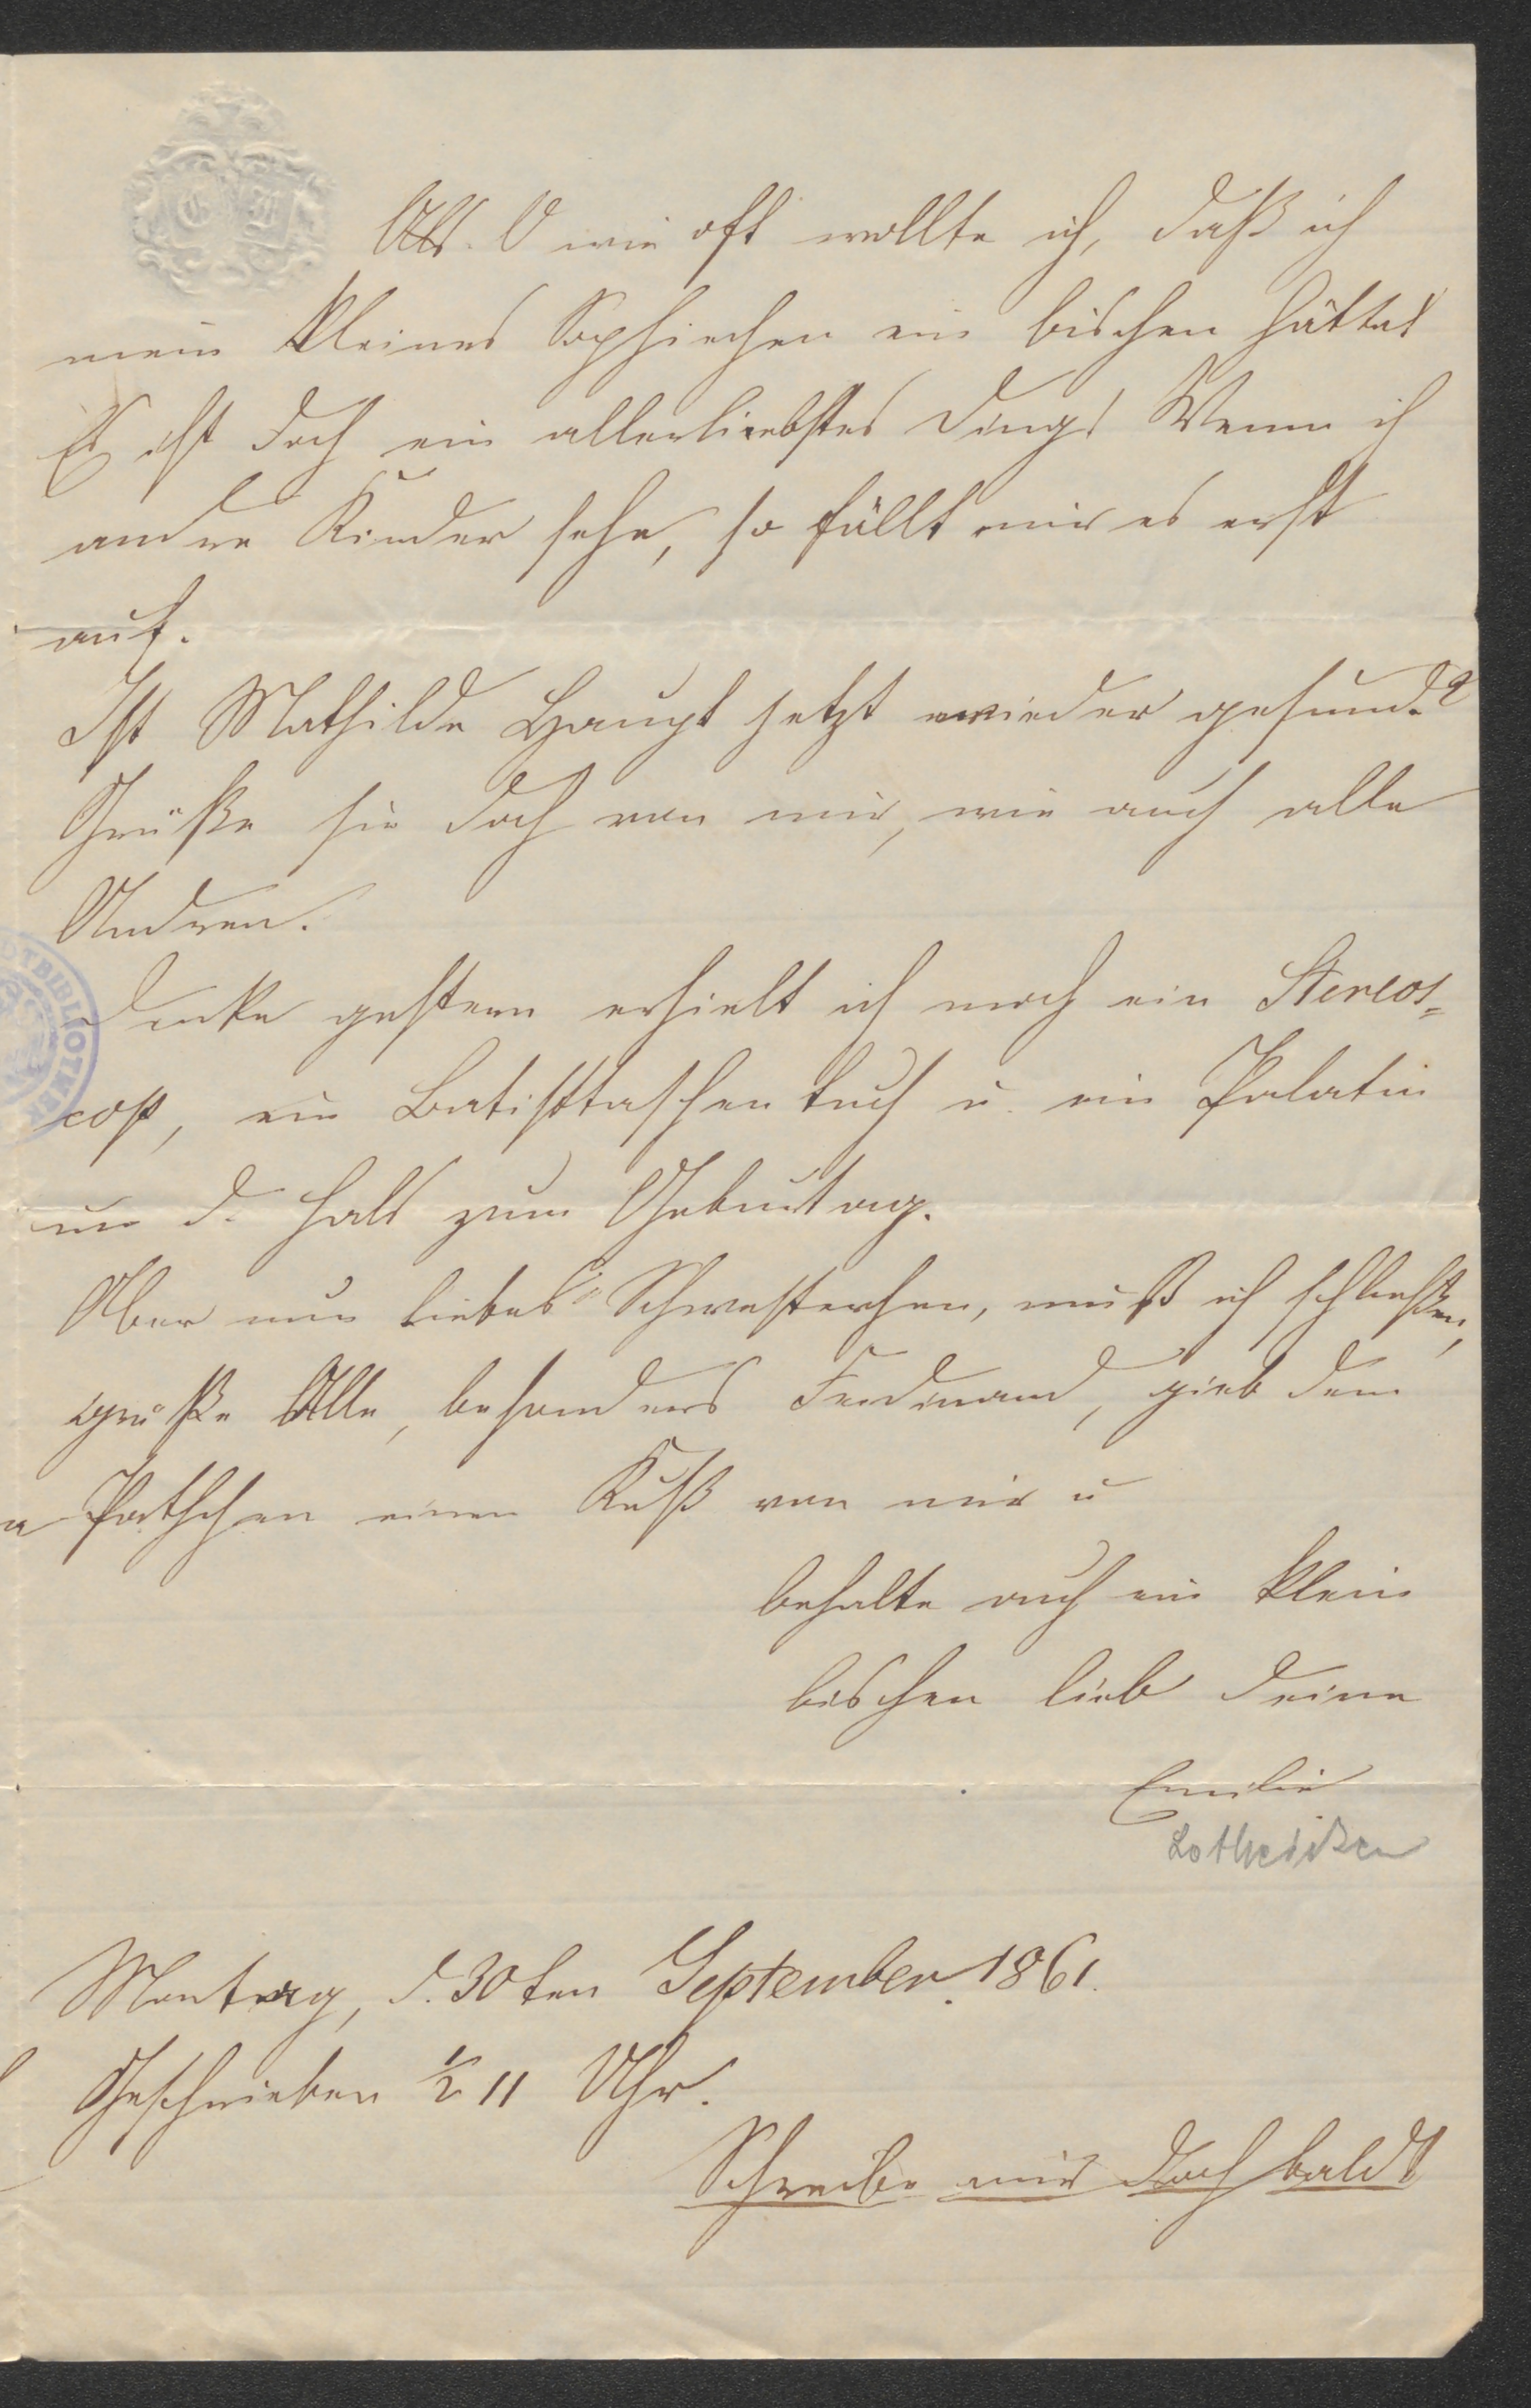 Alt. O wie oft wollte ich, daß ich
mein kleines Sophiechen ein bischen hätte!
Es ist doch ein allerliebstes Dings! Wenn ich
andre Kinder sehe, so fällt mir es erst
auf.
Ist Mathilde Haupt jetzt wieder gesund?
Grüße sie doch von mir, wie auch alle
Andren.
Denke gestern erhielt ich noch ein Stereos=
cop, ein Batisttaschentuch u. ein Palatin
um d. Hals zum Geburtag.
Aber nun liebes Schwesterchen, muß ich schließen,
grüße Alle, besonders Ferdinand, gieb dem
Pathchen einen Kuß von mir u
behalte auch ein klein
bischen lieb Deine
Emilie
Lotheißen
Montag, d. 30ten September. 1861.
Geschrieben ½ 11 Uhr.
Schreibe mir doch bald!